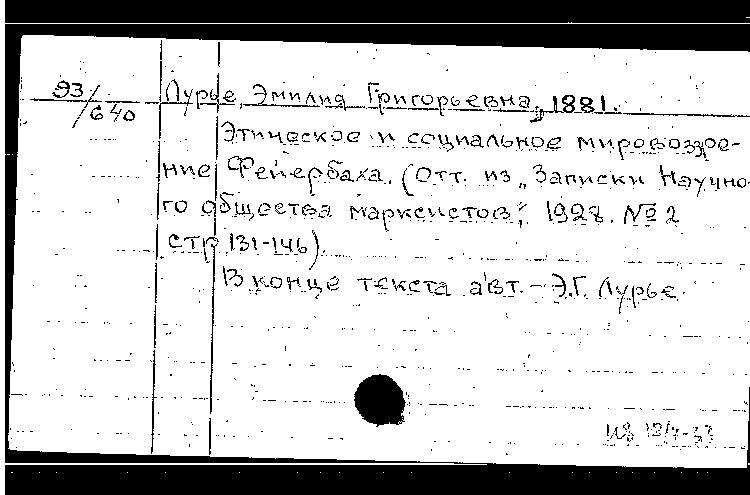 93/640
Лурье, Эмилия Григорьевна, 1881.
Этическое и социальное мировоззре-
ние Фейербаха. (Отт. из „Записки Научно-
го общества марксистов", 1928. № 2
стр 131-146).
В конце текста авт. – Э.Г. Лурье